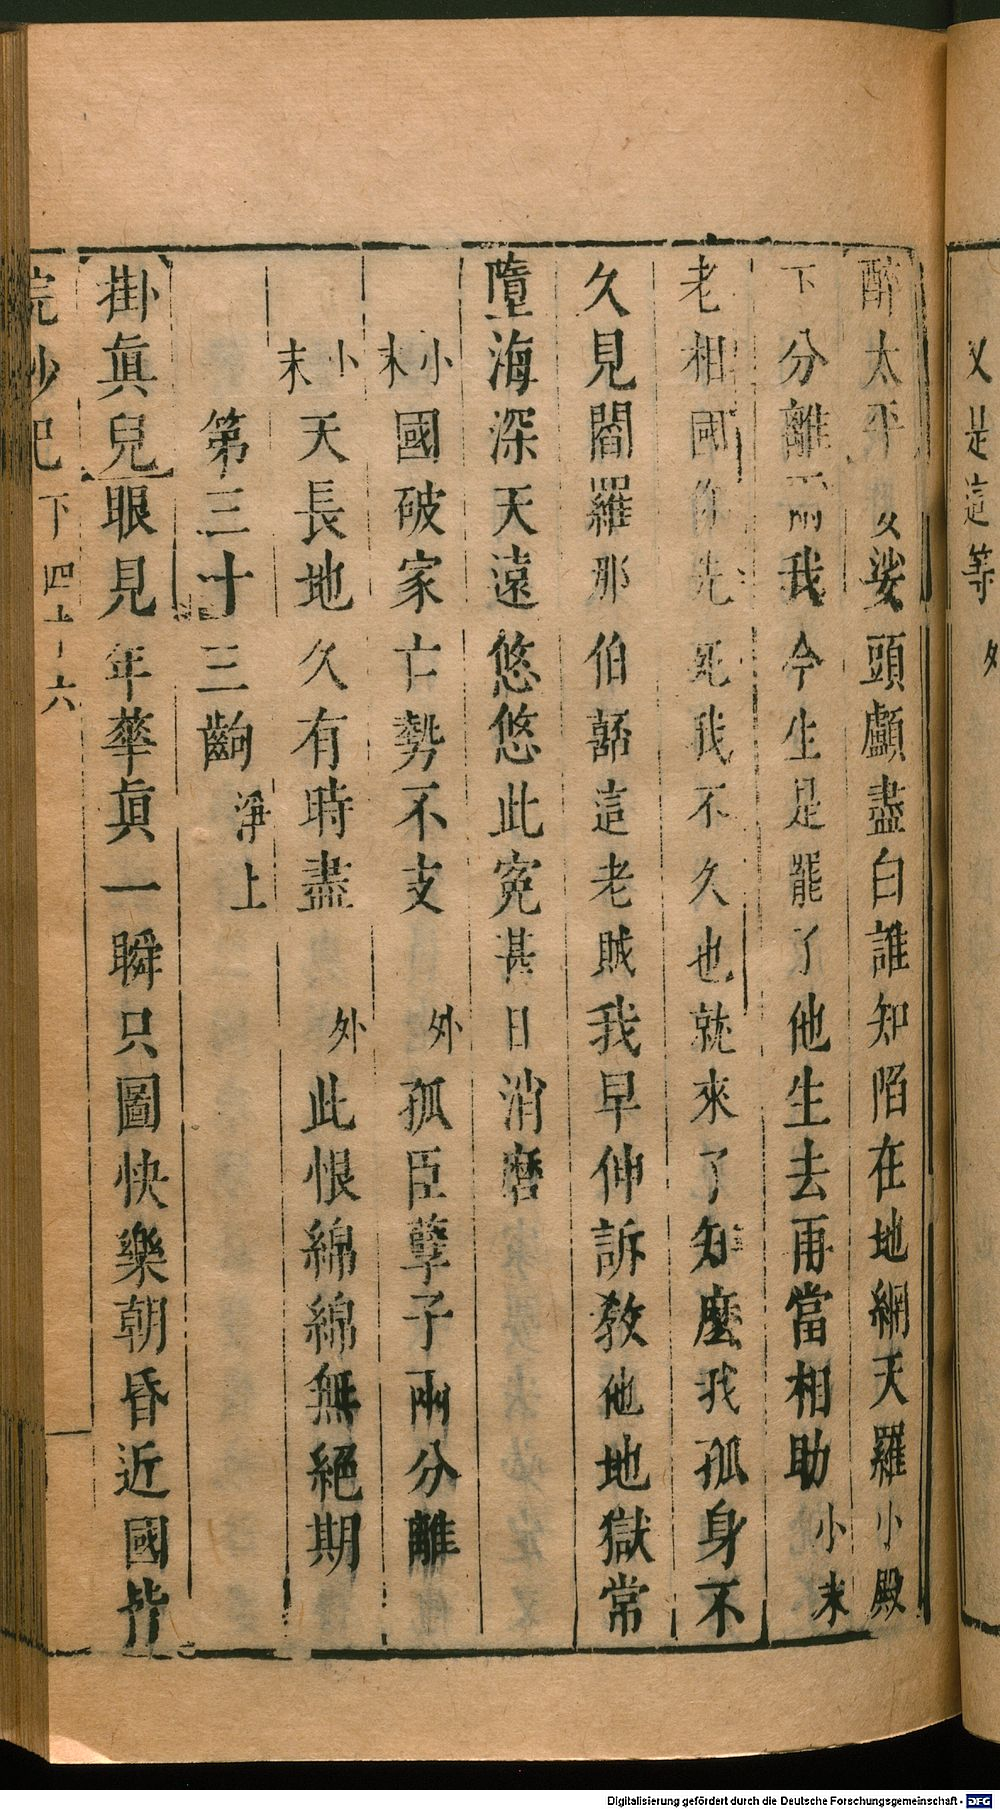 又是這等 外
醉太平娑頭顱盡白誰知陷在地網天羅小殿
下分離兩我今生是罷了他生去再當相助小末
老相國你先死我不久也就來了知麼我孤身不
久見閻羅那伯嚭這老賊我早仲訴教他地獄常
墮海深天遠悠悠此寃甚日消磨
小末國破家亡勢不支 外孤臣孽子兩分離
小末天長地久有時盡 外此恨綿綿無絕期
第三十三齣 淨上
掛眞兒眼見年華眞一瞬只圖快樂朝昏近國皆
浣紗記下 四十六
Digitalisierung gefördert durch die Deutsche Forschungsgemeinschaft - DFG